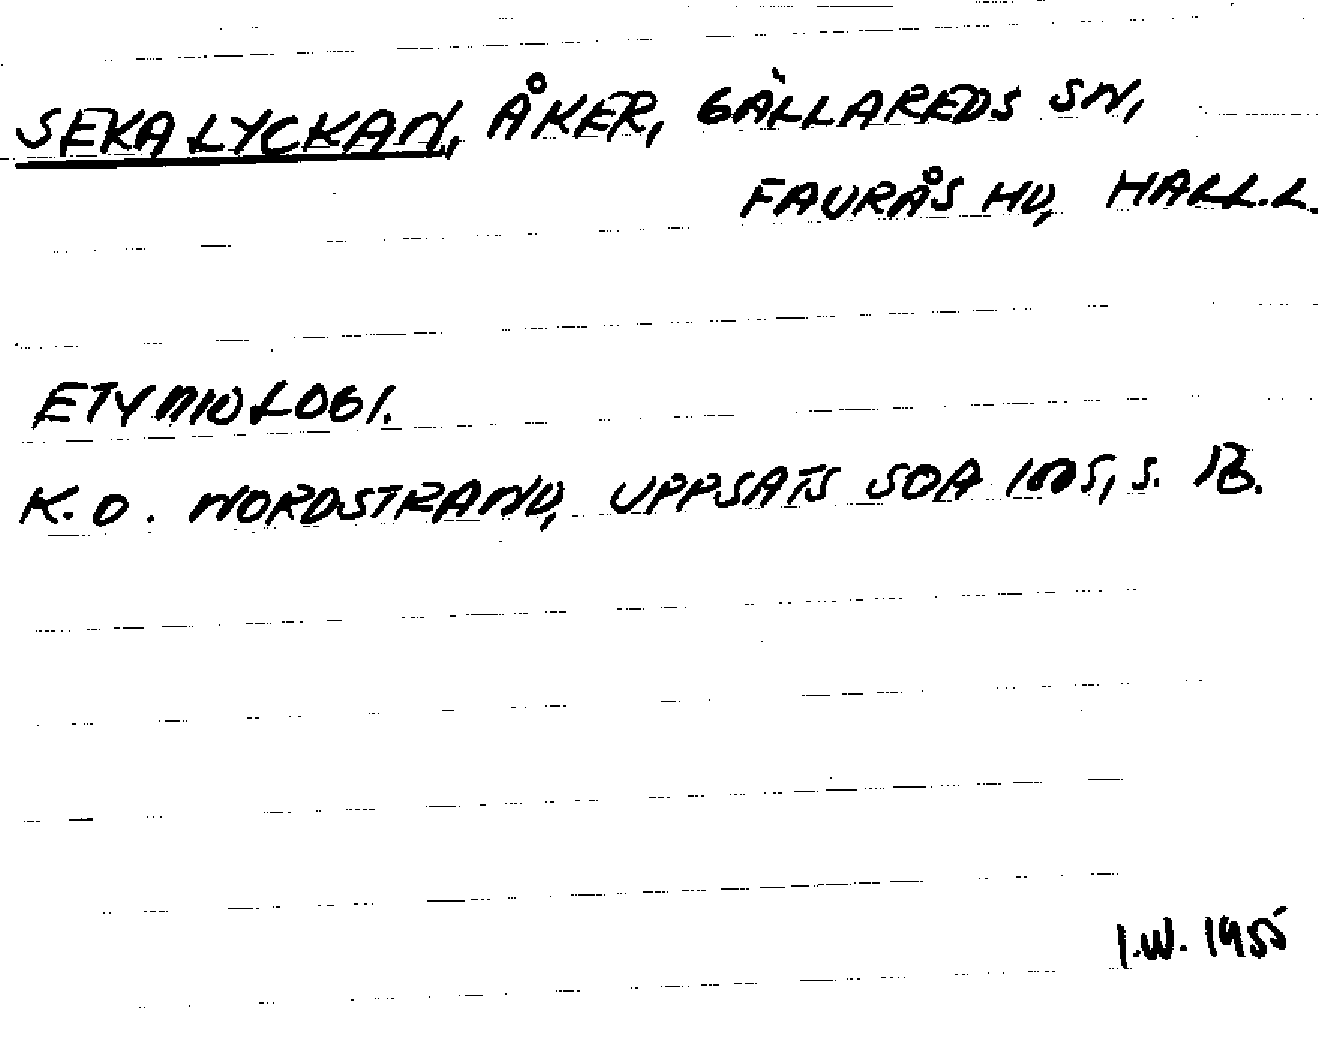 SEKALYCKAN, ÅKER, GÄLLAREDS SN,
FAURÅS HD, HALL.L.
ETYMOLOGI.
K.O. NORDSTRAND, UPPSATS SOA MS, s. 13.
I.W. 1955